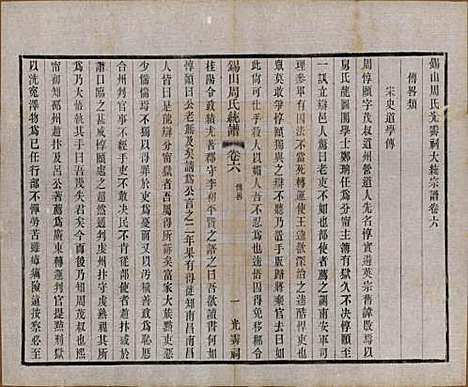 錫山周氏光霽祠大統宗譜卷六
傳畧類
宋史道學傳
周惇頤字茂叔道州營道人先名惇實避英宗舊諱改焉以
舅氏龍圖閣學士鄭珦任為分寧主簿有獄久不決惇頤至
一訊立辯邑人驚曰老吏不如也部使者薦之調南安軍司
理參軍有囚法不當死轉運使王逵欲深治之逵酷悍吏也
眾莫敢爭惇頤獨與之辯不聽乃委手版歸將棄官去曰如
此尚可仕乎殺人以媚人吾不為也逵悟囚得免移郴令徙
錫山周氏統譜 卷六 傳畧 一 光霽祠
桂陽令政績尤著郡守李初平賢之語之曰吾欲讀書何如
惇頤曰公老無及矣請為公言之二年果有得徙知南昌南昌
人皆曰是能辨分寧獄者吾屬得所訴矣富家大族黠吏惡
台州判官事不經手吏不敢決民不肯從部使者趙抃
臨之甚威惇頤處之超然通判虔州抃守虔熟視其所為
乃大悟執其手曰吾幾失君矣今而後乃知周茂叔也熙
寧初知郴州用抃及呂公著薦為廣東轉運判官提點刑獄
以洗冤澤物為己任行部不憚勞苦雖瘴癘險遠按察必至